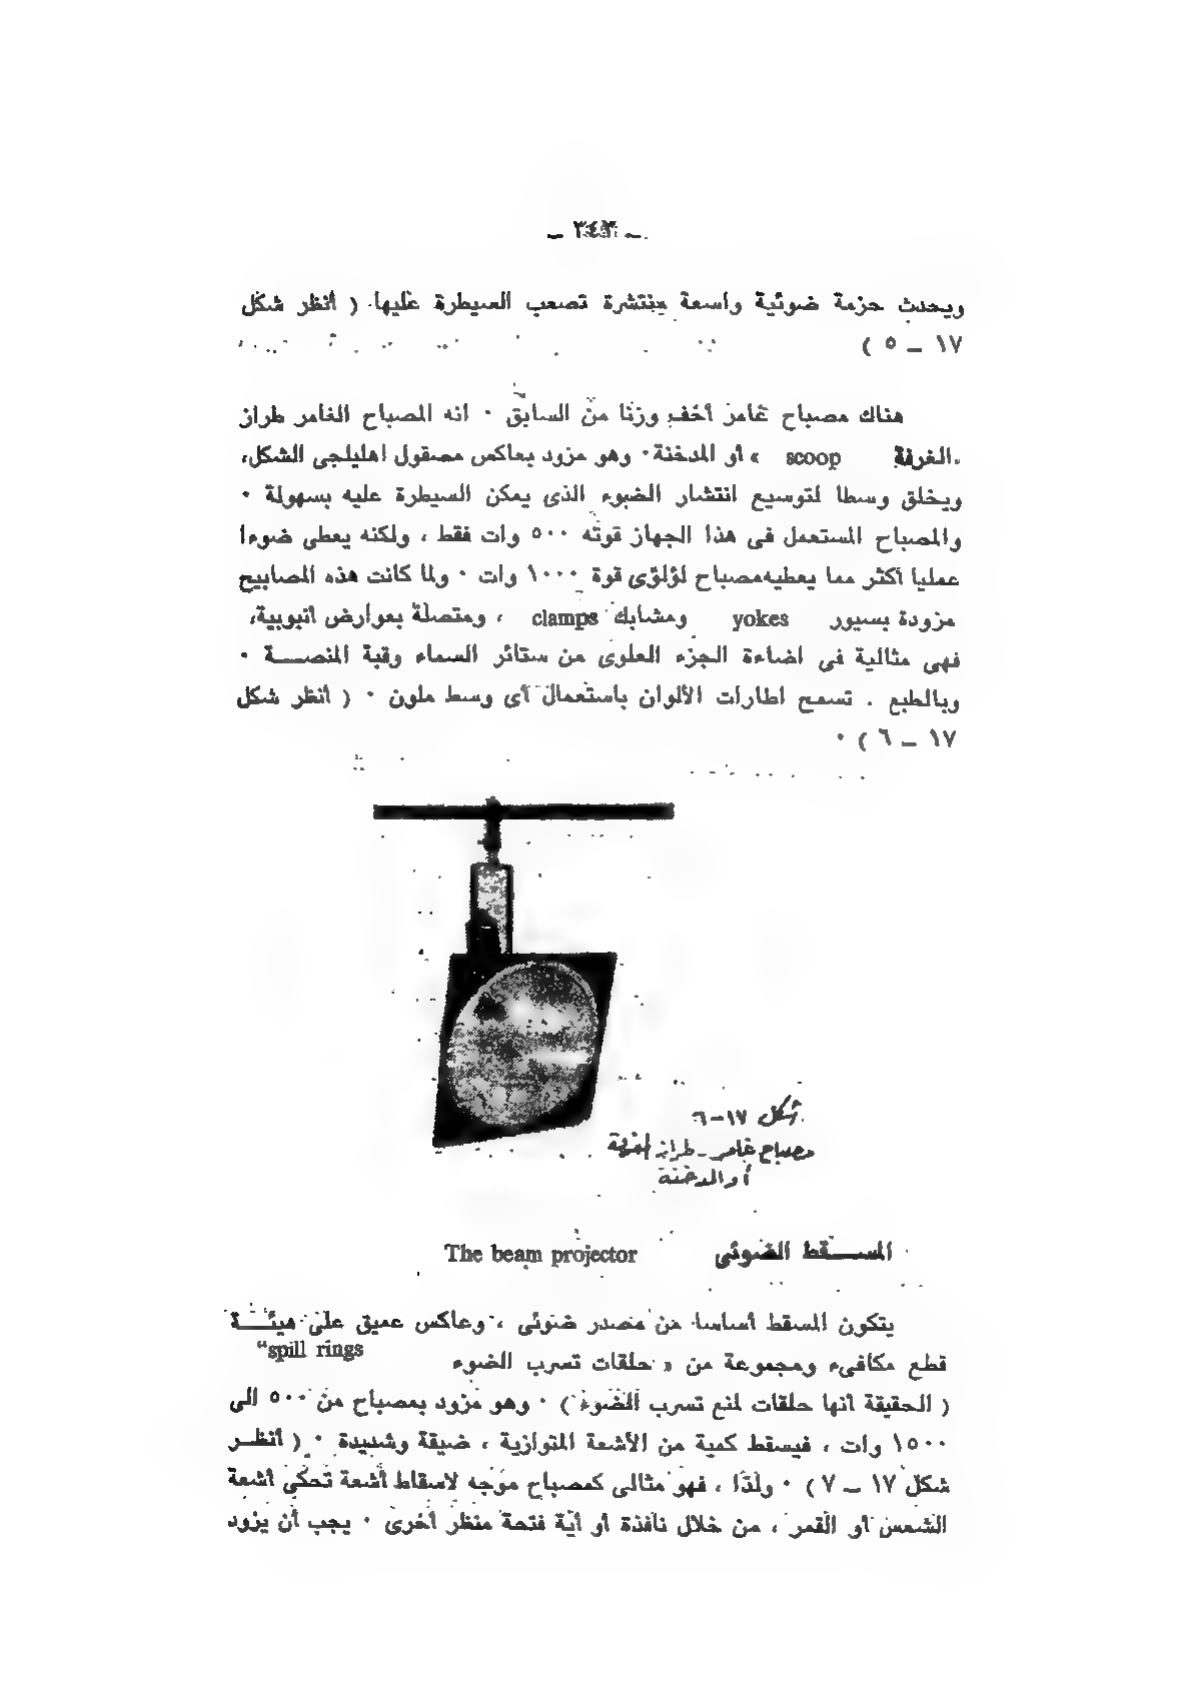 ـ ٣٤٣ ـ
ويحدث حزمة ضوئية واسعة منتشرة تصعب السيطرة عليها ( أنظر شكل
١٧ ـ ٥ )
هناك مصباح غامر أخف وزنا من السابق ٠ انه المصباح الغامر طراز
الغرفة scoop » أو المدخنة ٠ وهو مزود بعاكس مصقول اهليلجى الشكل،
ويخلق وسطا لتوسيع انتشار الضوء الذى يمكن السيطرة عليه بسهولة ٠
والمصباح المستعمل فى هذا الجهاز قوته ٥٠٠ وات فقط ، ولكنه يعطى ضوءا
عمليا أكثر مما يعطيه مصباح لؤلؤى قوة ١٠٠٠ وات ٠ ولما كانت هذه المصابيح
مزودة بسيور yokes ومشابك clamps ، ومتصلة بعوارض أنبوبية،
فهى مثالية فى اضاءة الجزء العلوى من ستائر السماء وقبة المنصــة ٠
وبالطبع . تسمح اطارات الألوان باستعمال أى وسط ملون ٠ ( أنظر شكل
١٧ ـ ٦ ) ٠
شكل ١٧-٦
مصباح غامر - طراز الغرفة
أو المدخنة
المســـقط الضوئى The beam projector
يتكون المسقط أساسا من مصدر ضوئى ، وعاكس عميق على هيئـــة
قطع مكافىء ومجموعة من « حلقات تسرب الضوء spill rings“
( الحقيقة أنها حلقات لمنع تسرب الضوء ) ٠ وهو مزود بمصباح من ٥٠٠ الى
١٥٠٠ وات ، فيسقط كمية من الأشعة المتوازية ، ضيقة وشديدة ٠ ( أنظــر
شكل ١٧ ـ ٧ ) ٠ ولذا ، فهو مثالى كمصباح موجه لاسقاط أشعة تحكى أشعة
الشمس أو القمر ، من خلال نافذة أو أية فتحة منظر أخرى ٠ يجب أن يزود